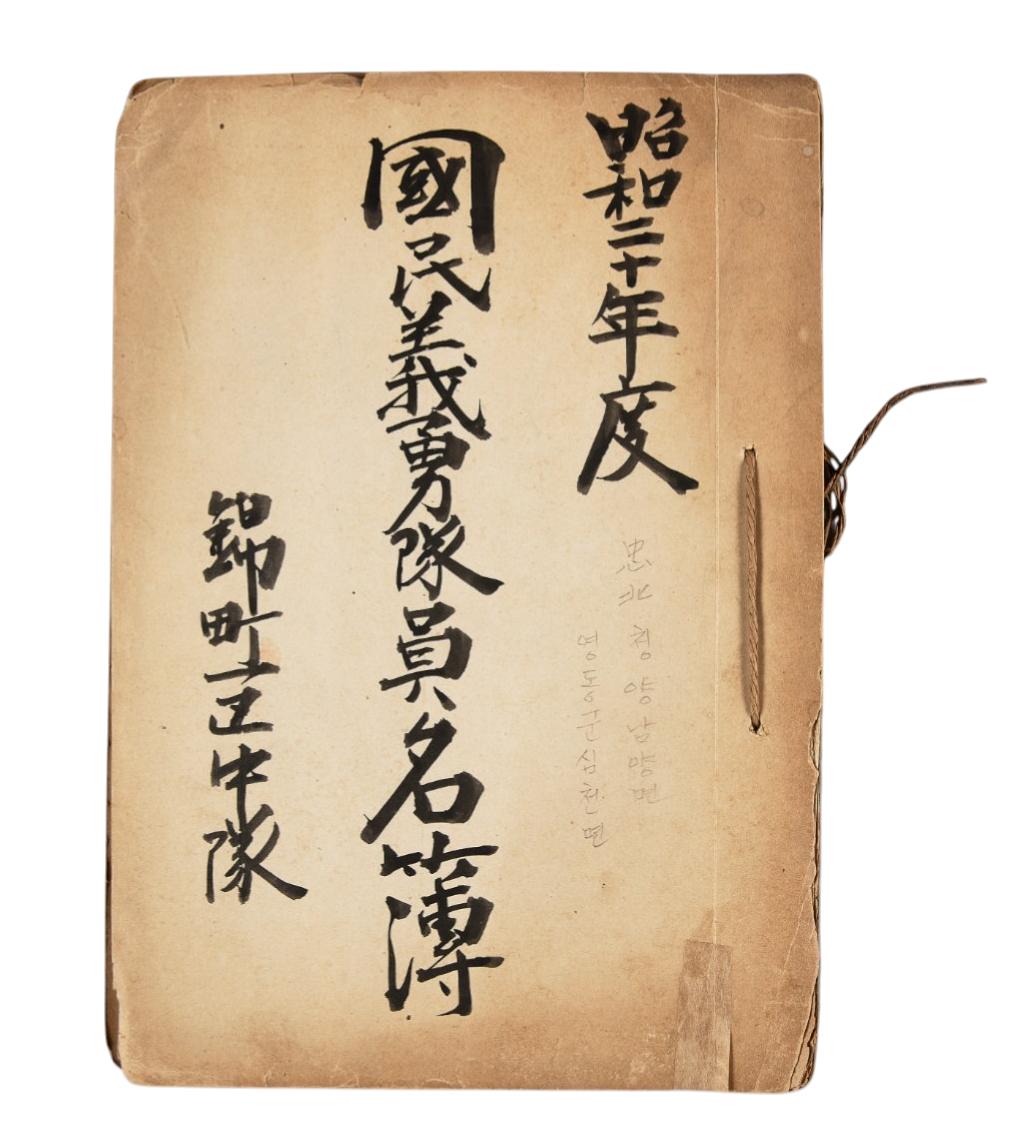 昭和二十年度
忠北 청양남양면
영동군심천면
國民義勇隊員名簿
錦町 中隊